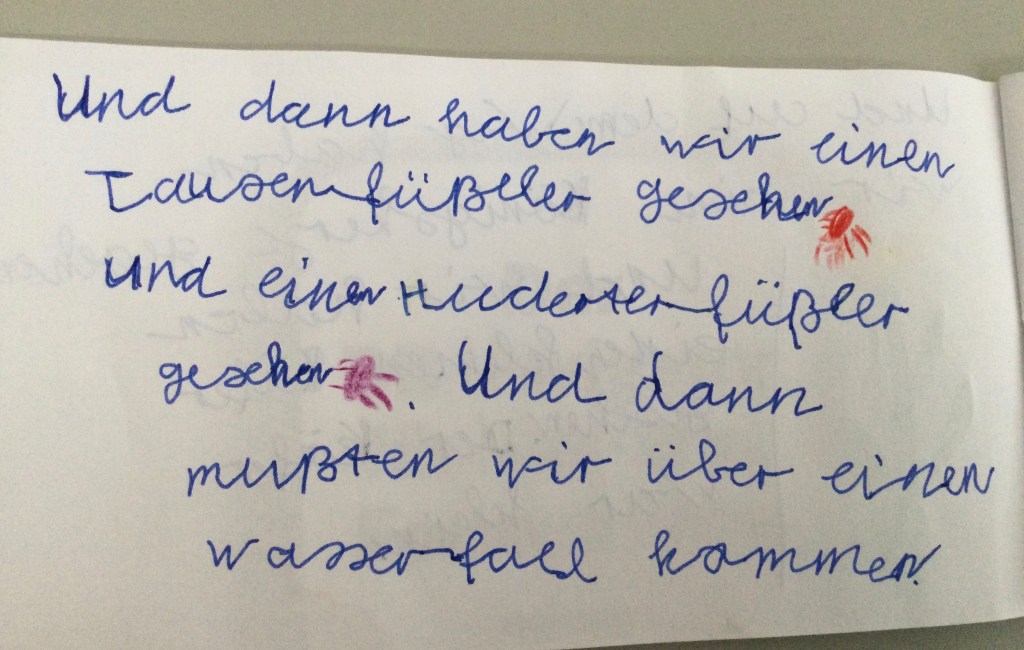 Und dann haben wir einen
Tausenfüßller gesehen
Und einen Huderterfüßler
gesehen. Und dann
mußten wir über einen
wasserfall kommen.